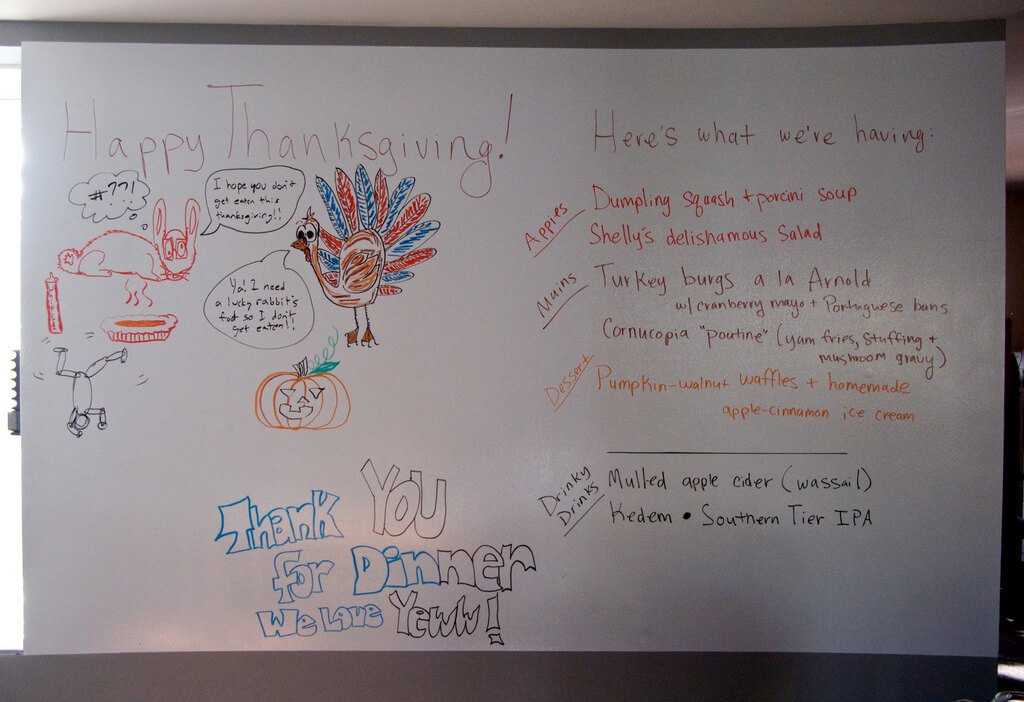 Happy Thanksgiving!
#??!
I hope you don't
get eaten this
thanksgiving!!
Ya! I need
a lucky rabbit's
foot so I don't
get eaten!!
eeee
Thank You
for Dinner
We Love Yeww!
Here's what we're having:
Appies
Dumpling squash + porcini soup
Shelly's delishamous Salad
Mains
Turkey burgs a la Arnold
w/ cranberry mayo + Portuguese buns
Cornucopia "poutine" (yam fries, stuffing +
mushroom gravy)
Dessert
Pumpkin-walnut waffles + homemade
apple-cinnamon ice cream
Drinky
Drinks
Mulled apple cider (wassail)
Kedem • Southern Tier IPA